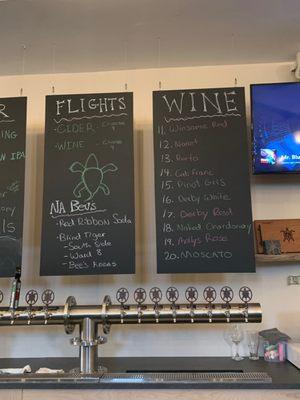 ON IPA
FLIGHTS
-CIDER - CHOOSE 4
-WINE - CHOOSE 4
NA Bevs
-Red Ribbon Soda
-Blind Tiger
-South Side
-Ward 8
-Bee's Knees
WINE
11. Winsome Red
12. Nonet
13. Porto
14. Cab Franc
15. Pinot Gris
16. Derby White
17. Derby Rosé
18. Naked Chardonnay
19. Ally's Rosé
20. Moscato
Mr. Blu